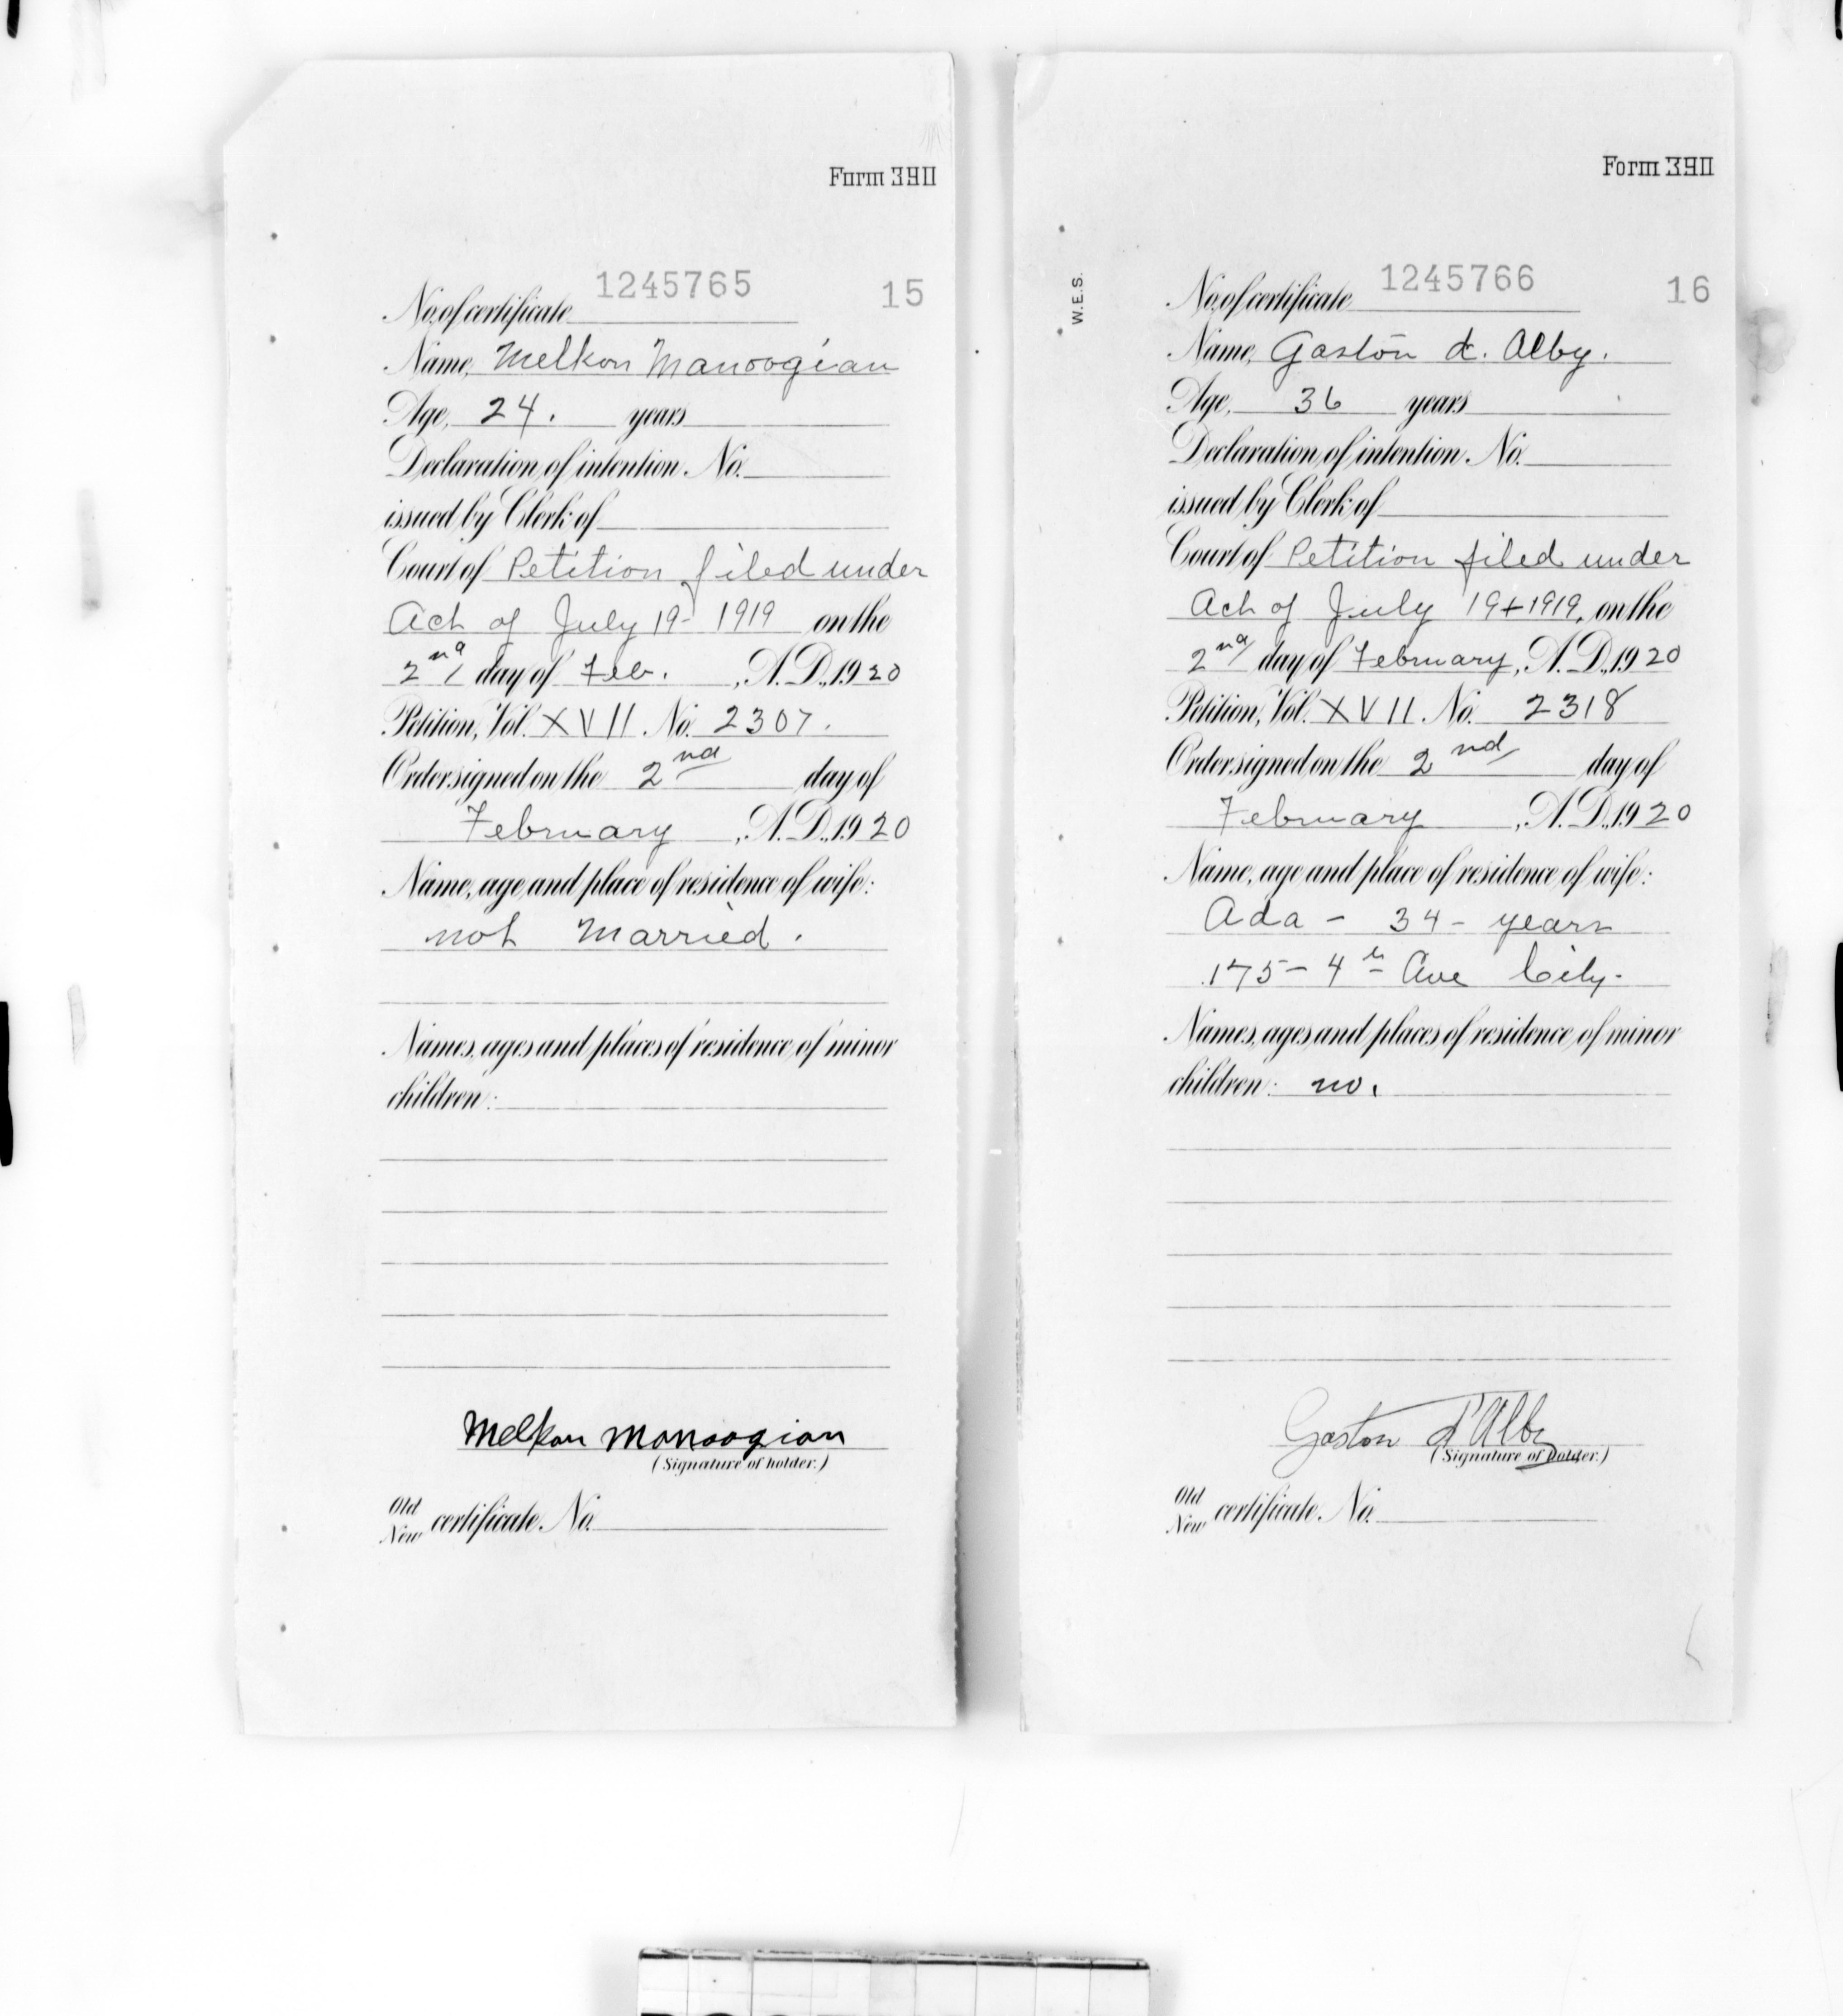 Form 390
No. of certificate 1245765 15
Name, Melkon Manoogian
Age, 24. years
Declaration of intention No.
issued by Clerk of
Court of Petition filed under
Act of July 19- 1919 on the
2nd day of Feb. , A.D., 1920
Petition, Vol. XVII No. 2307.
Order signed on the 2nd day of
February , A.D., 1920
Name, age and place of residence of wife:
not Married.
Names, ages and places of residence of minor
children:
Melkon Manoogian
(Signature of holder.)
Old
New certificate No.
Form 390
W.E.S.
No. of certificate 1245766 16
Name, Gaston d. Alby.
Age, 36 years
Declaration of intention No.
issued by Clerk of
Court of Petition filed under
Act of July 19+1919, on the
2nd day of February, A.D., 1920
Petition, Vol. XVII No. 2318
Order signed on the 2nd day of
February , A.D., 1920
Name, age and place of residence of wife:
Ada - 34 - years
175 - 4th Ave City.
Names, ages and places of residence of minor
children: no.
Gaston d'Alby
(Signature of holder.)
Old
New certificate No.